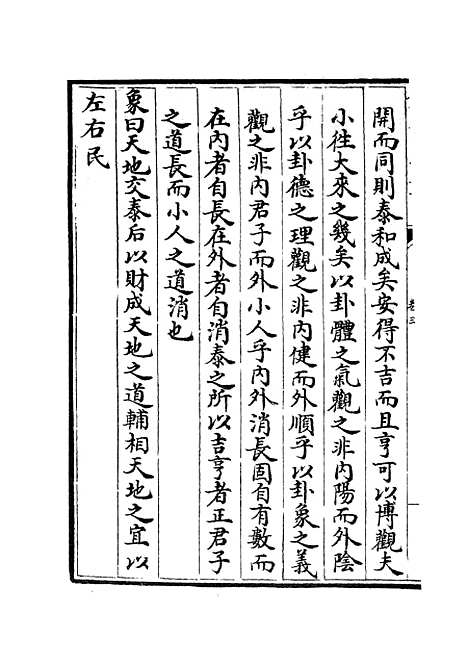 開而同則泰和成矣安得不吉而且亨可以博觀夫
小徃大來之幾矣以卦體之氣觀之非内陽而外陰
乎以卦德之理觀之非内健而外順乎以卦象之義
觀之非内君子而外小人乎内外消長固自有數而
在内者自長在外者自消泰之所以吉亨者正君子
之道長而小人之道消也
象曰天地交泰后以財成天地之道輔相天地之宜以
左右民
卷三